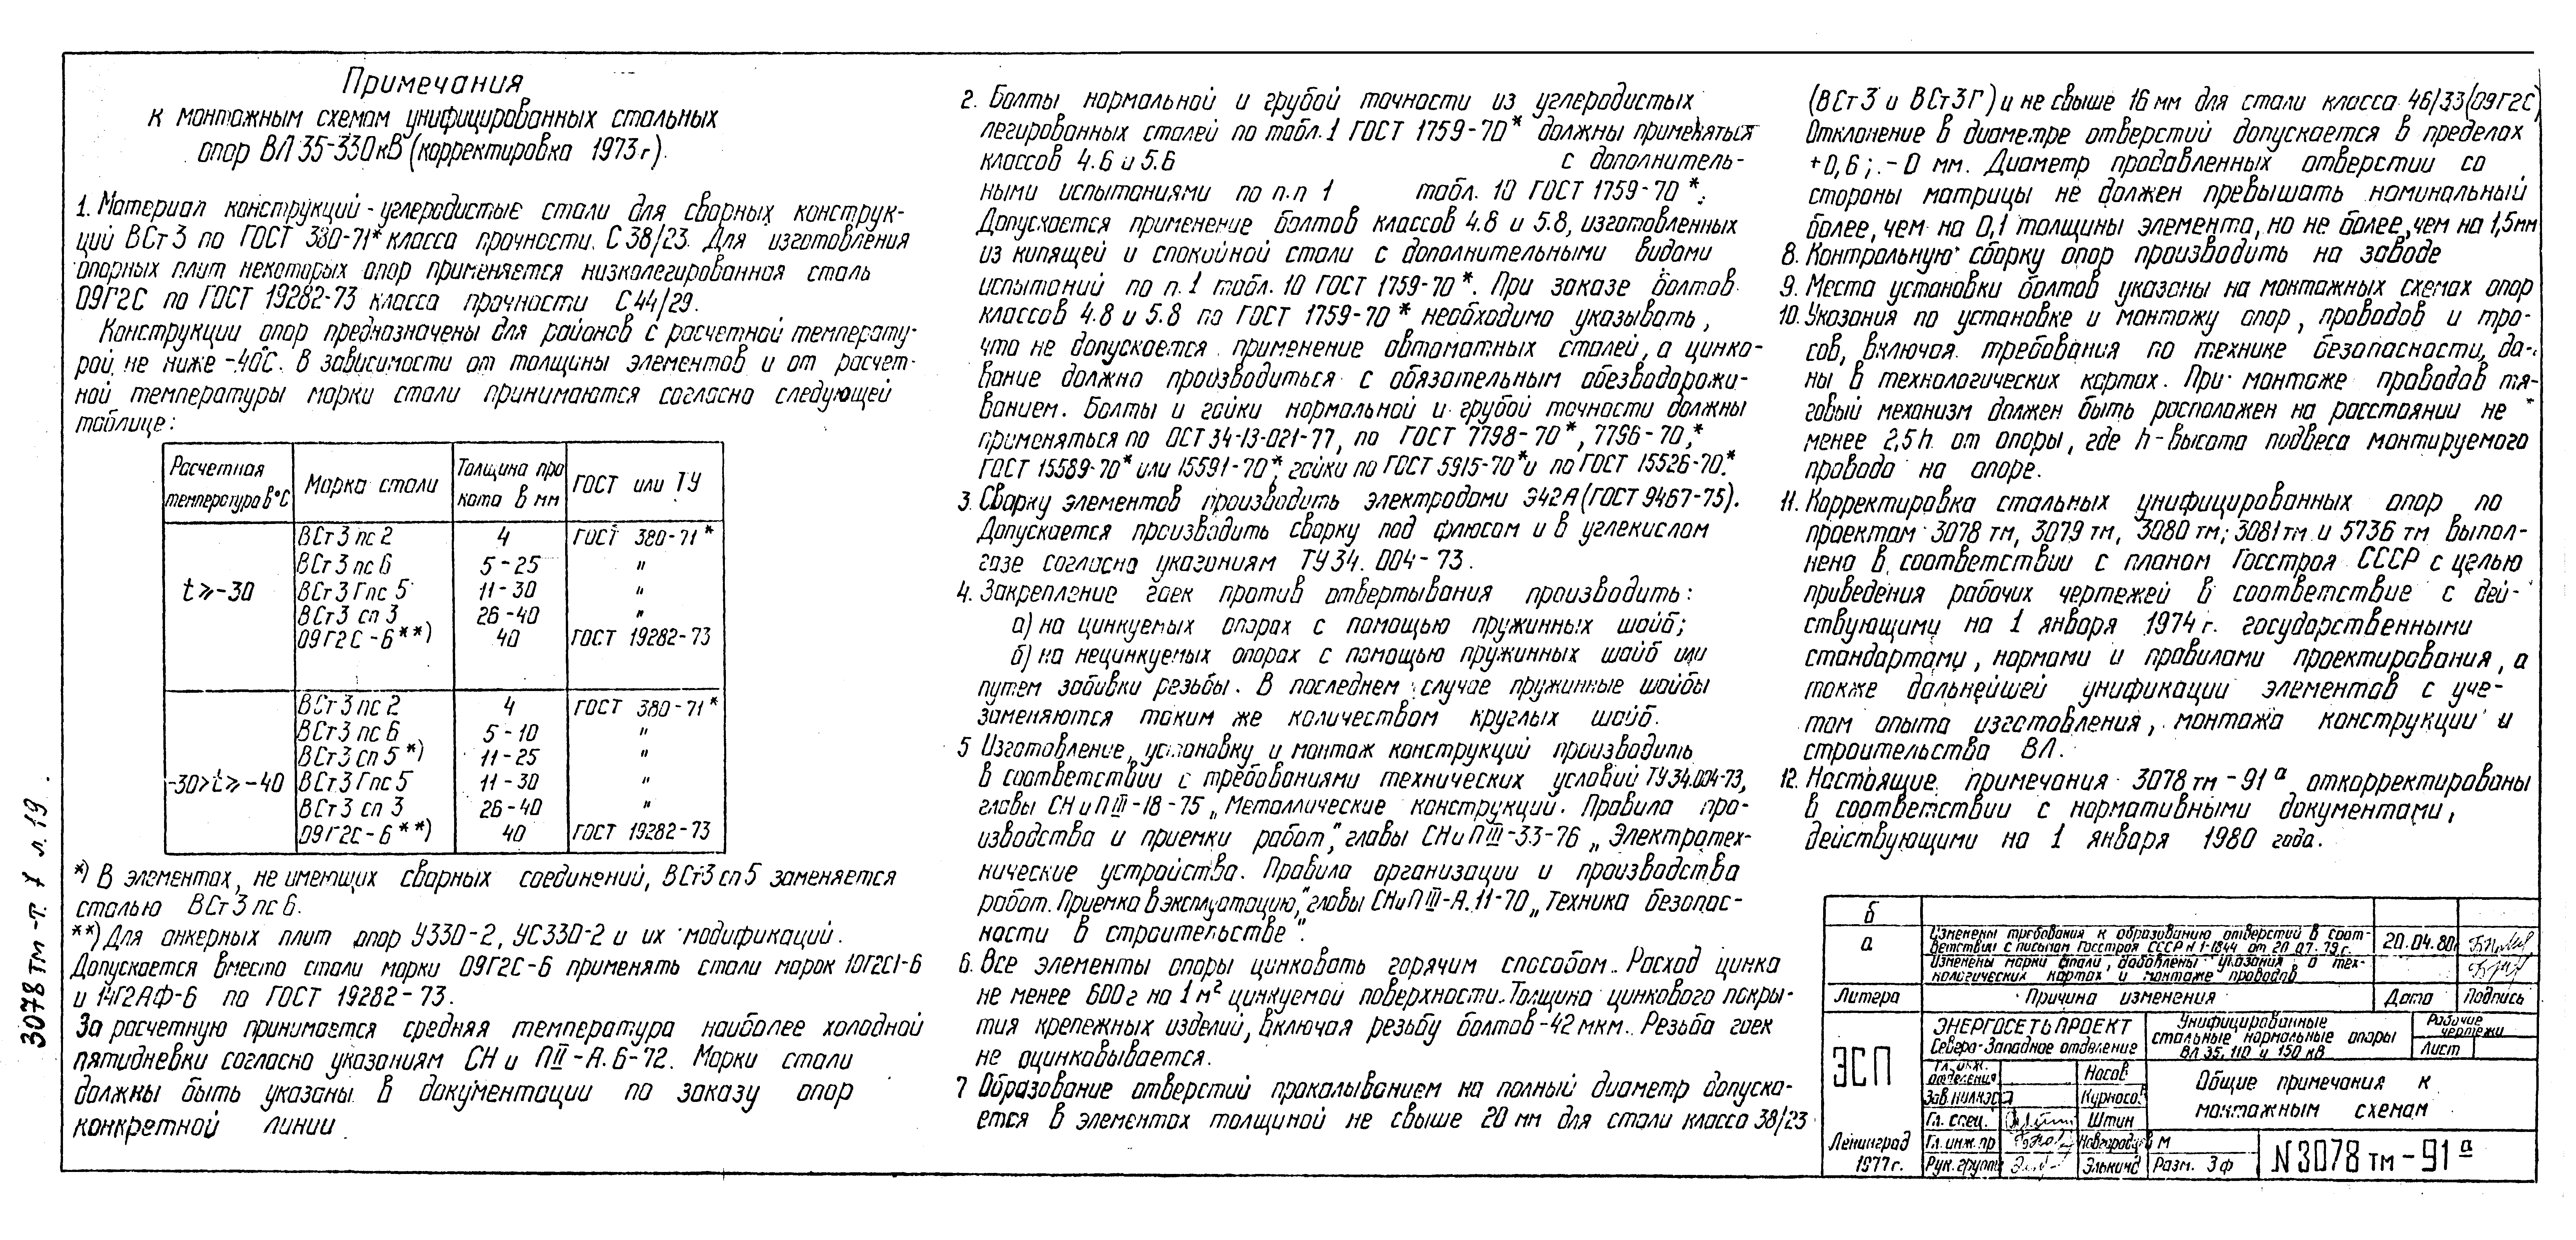 Примечания
к монтажным схемам унифицированных стальных
опор ВЛ 35-330 кВ (корректировка 1973 г).
1. Материал конструкций - углеродистые стали для сварных конструк-
ций ВСт 3 по ГОСТ 380-71* класса прочности С 38/23. Для изготовления
опорных плит некоторых опор применяется низколегированная сталь
09Г2С по ГОСТ 19282-73 класса прочности С44/29.
Конструкции опор предназначены для районов с расчетной температу-
рой не ниже -40°С. В зависимости от толщины элементов и от расчет-
ной температуры марки стали принимаются согласно следующей
таблице:
Расчетная температура в °С | Марка стали | Толщина про ката в мм | ГОСТ или ТУ
t ⩾ -30
ВСт 3 пс 2 4 ГОСТ 380-71*
ВСт 3 пс 6 5-25 "
ВСт 3 Гпс 5 11-30 "
ВСт 3 сп 3 26-40 "
09Г2С-6**) 40 ГОСТ 19282-73
-30 > t ⩾ -40
ВСт 3 пс 2 4 ГОСТ 380-71*
ВСт 3 пс 6 5-10 "
ВСт 3 сп 5*) 11-25 "
ВСт 3 Гпс 5 11-30 "
ВСт 3 сп 3 26-40 "
09Г2С-6**) 40 ГОСТ 19282-73
*) В элементах, не имеющих сварных соединений, ВСт3 сп 5 заменяется
сталью ВСт 3 пс 6.
**) Для анкерных плит опор У330-2, УС330-2 и их модификаций.
Допускается вместо стали марки 09Г2С-6 применять стали марок 10Г2С1-6
и 14Г2АФ-6 по ГОСТ 19282-73.
За расчетную принимается средняя температура наиболее холодной
пятидневки согласно указаниям СН и П II-А.6-72. Марки стали
должны быть указаны в документации по заказу опор
конкретной линии
3078 тм-т. 7 л. 19.
2. Болты нормальной и грубой точности из углеродистых
легированных сталей по табл. 1 ГОСТ 1759-70* должны применяться
классов 4.6 и 5.6 с дополнитель-
ными испытаниями по п.п 1 табл. 10 ГОСТ 1759-70*.
Допускается применение болтов классов 4.8 и 5.8, изготовленных
из кипящей и спокойной стали с дополнительными видами
испытаний по п. 1 табл. 10 ГОСТ 1759-70*. При заказе болтов
классов 4.8 и 5.8 по ГОСТ 1759-70* необходимо указывать,
что не допускается применение автоматных сталей, а цинко-
вание должно производиться с обязательным обезводорожи-
ванием. Болты и гайки нормальной и грубой точности должны
применяться по ОСТ 34-13-021-77, по ГОСТ 7798-70*, 7796-70,*
ГОСТ 15589-70* или 15591-70*, гайки по ГОСТ 5915-70* и по ГОСТ 15526-70.*
3. Сварку элементов производить электродами Э42А (ГОСТ 9467-75).
Допускается производить сварку под флюсом и в углекислом
газе согласно указаниям ТУ 34. 004-73.
4. Закрепление гаек против отвертывания производить:
а) на цинкуемых опорах с помощью пружинных шайб;
б) на нецинкуемых опорах с помощью пружинных шайб или
путем забивки резьбы. В последнем случае пружинные шайбы
заменяются таким же количеством круглых шайб.
5 Изготовление, установку и монтаж конструкций производить
в соответствии с требованиями технических условий ТУ 34.004-73,
главы СН и П III-18-75 „Металлические конструкций. Правила про-
изводства и приемки работ", главы СН и П III-33-76 „Электротех-
нические устройства. Правила организации и производства
работ. Приемка в эксплуатацию," главы СН и П III-А.11-70 „Техника безопас-
ности в строительстве".
6. Все элементы опоры цинковать горячим способом. Расход цинка
не менее 600 г на 1 м² цинкуемой поверхности. Толщина цинкового покры-
тия крепежных изделий, включая резьбу болтов-42 мкм. Резьба гаек
не оцинковывается.
7 Образование отверстий прокалыванием на полный диаметр допуска-
ется в элементах толщиной не свыше 20 мм для стали класса 38/23
(ВСт 3 и ВСт 3Г) и не свыше 16 мм для стали класса 46/33 (09Г2С)
Отклонение в диаметре отверстий допускается в пределах
+0,6; -0 мм. Диаметр продавленных отверстии со
стороны матрицы не должен превышать номинальный
более, чем на 0,1 толщины элемента, но не более, чем на 1,5мм
8. Контрольную сборку опор производить на заводе
9. Места установки болтов указаны на монтажных схемах опор
10. Указания по установке и монтажу опор, проводов и тро-
сов, включая требования по технике безопасности, да-
ны в технологических картах. При монтаже проводов тя-
говый механизм должен быть расположен на расстоянии не
менее 2,5 h от опоры, где h-высота подвеса монтируемого
провода на опоре.
11. Корректировка стальных унифицированных опор по
проектам 3078 тм, 3079 тм, 3080 тм; 3081 тм и 5736 тм выпол-
нена в соответствии с планом Госстроя СССР с целью
приведения рабочих чертежей в соответствие с дей-
ствующими на 1 января 1974 г. государственными
стандартами, нормами и правилами проектирования, а
также дальнейшей унификации элементов с уче-
том опыта изготовления, монтажа конструкции и
строительства ВЛ.
12. Настоящие примечания 3078 тм-91ᵃ откорректированы
в соответствии с нормативными документами,
действующими на 1 января 1980 года.
б
а Изменены требования к образованию отверстий в соот-
ветствии с письмом Госстроя СССР N 1-1844 от 20.07.79 г. 20.04.80г
Изменены марки стали, добавлены указания о тех-
нологических картах и монтаже проводов
Литера Причина изменения Дата Подпись
ЭСП
ЭНЕРГОСЕТЬПРОЕКТ
Северо-Западное отделение
Унифицированные
стальные нормальные опоры
ВЛ 35, 110 и 150 кВ
Рабочие
чертежи
Лист
Гл. инж.
отделения Носов
Зав. Курносов
Гл. спец. Штин
Гл. инж. пр Новгородцев
Рук. группы Элькинд
Общие примечания к
монтажным схемам
Ленинград
1977 г.
М
Разм. 3ф
N 3078 тм-91ᵃ